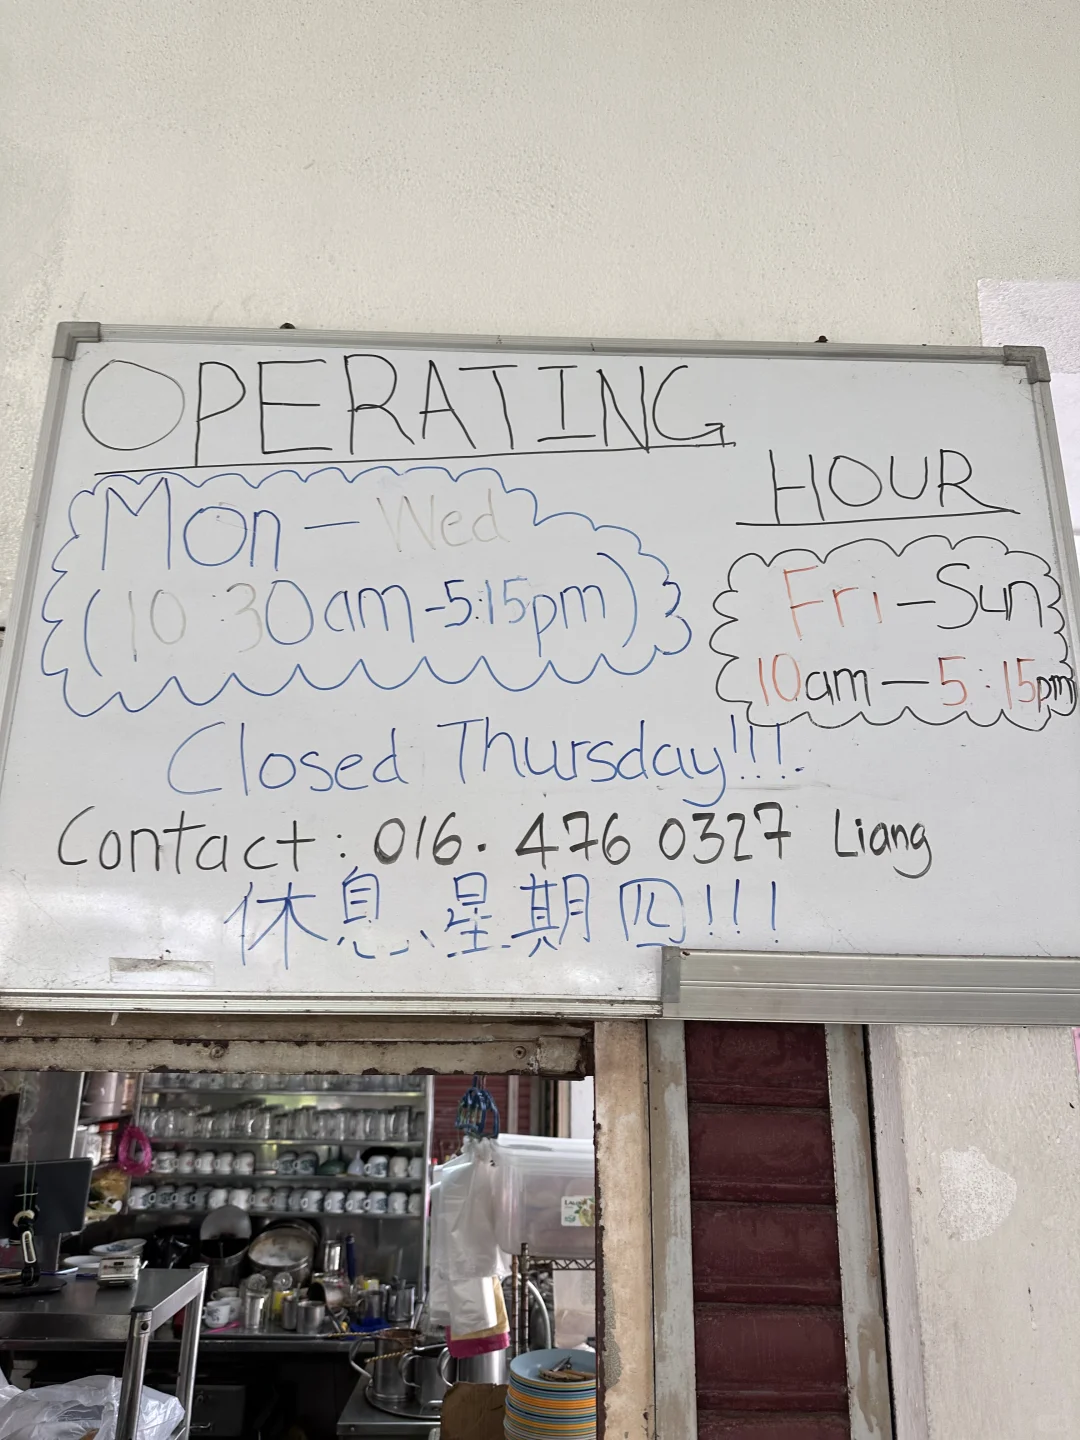 OPERATING
HOUR
Mon - Wed
(10:30am - 5:15pm)
Fri - Sun
10am - 5:15pm
Closed Thursday!!!
Contact : 016. 476 0327 Liang
休息、星期四!!!